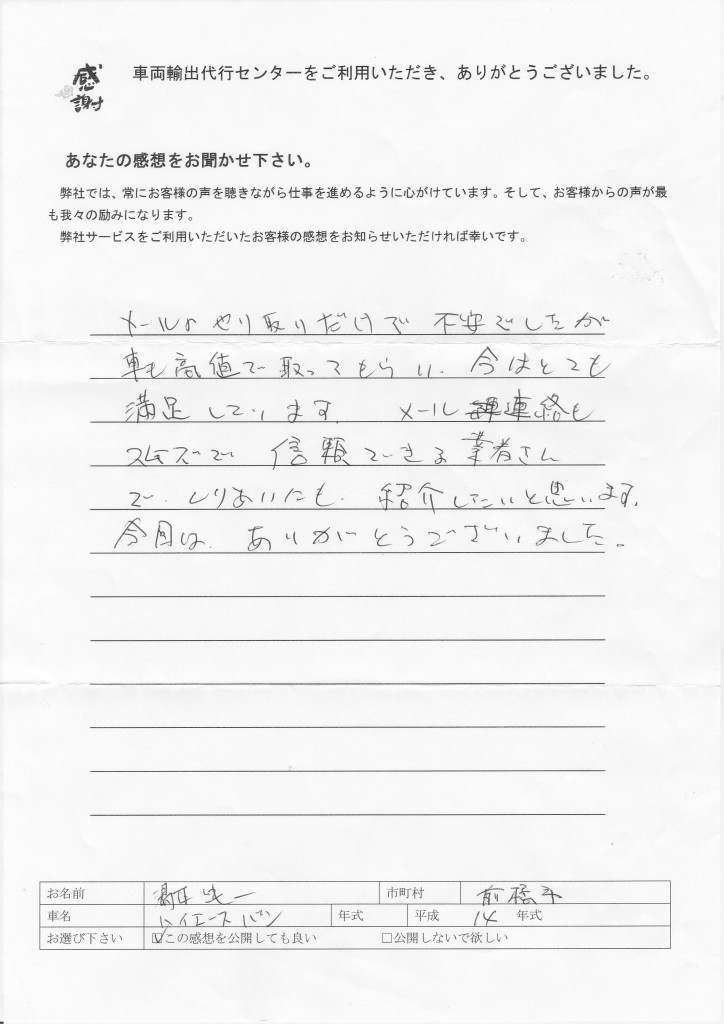 感謝
車両輸出代行センターをご利用いただき、ありがとうございました。
あなたの感想をお聞かせ下さい。
弊社では、常にお客様の声を聴きながら仕事を進めるように心がけています。そして、お客様からの声が最
も我々の励みになります。
弊社サービスをご利用いただいたお客様の感想をお知らせいただければ幸いです。
メールのやり取りだけで 不安でしたが
車も高値で取ってもらい、今はとても
満足しています。 メール連絡も
スムーズで 信頼できる業者さん
で、しりあいにも、紹介したいと思います。
今回は、ありがとうございました。
お名前 一 市町村 前橋市
車名 ハイエースバン 年式 平成 14 年式
お選び下さい ☑この感想を公開しても良い □公開しないで欲しい